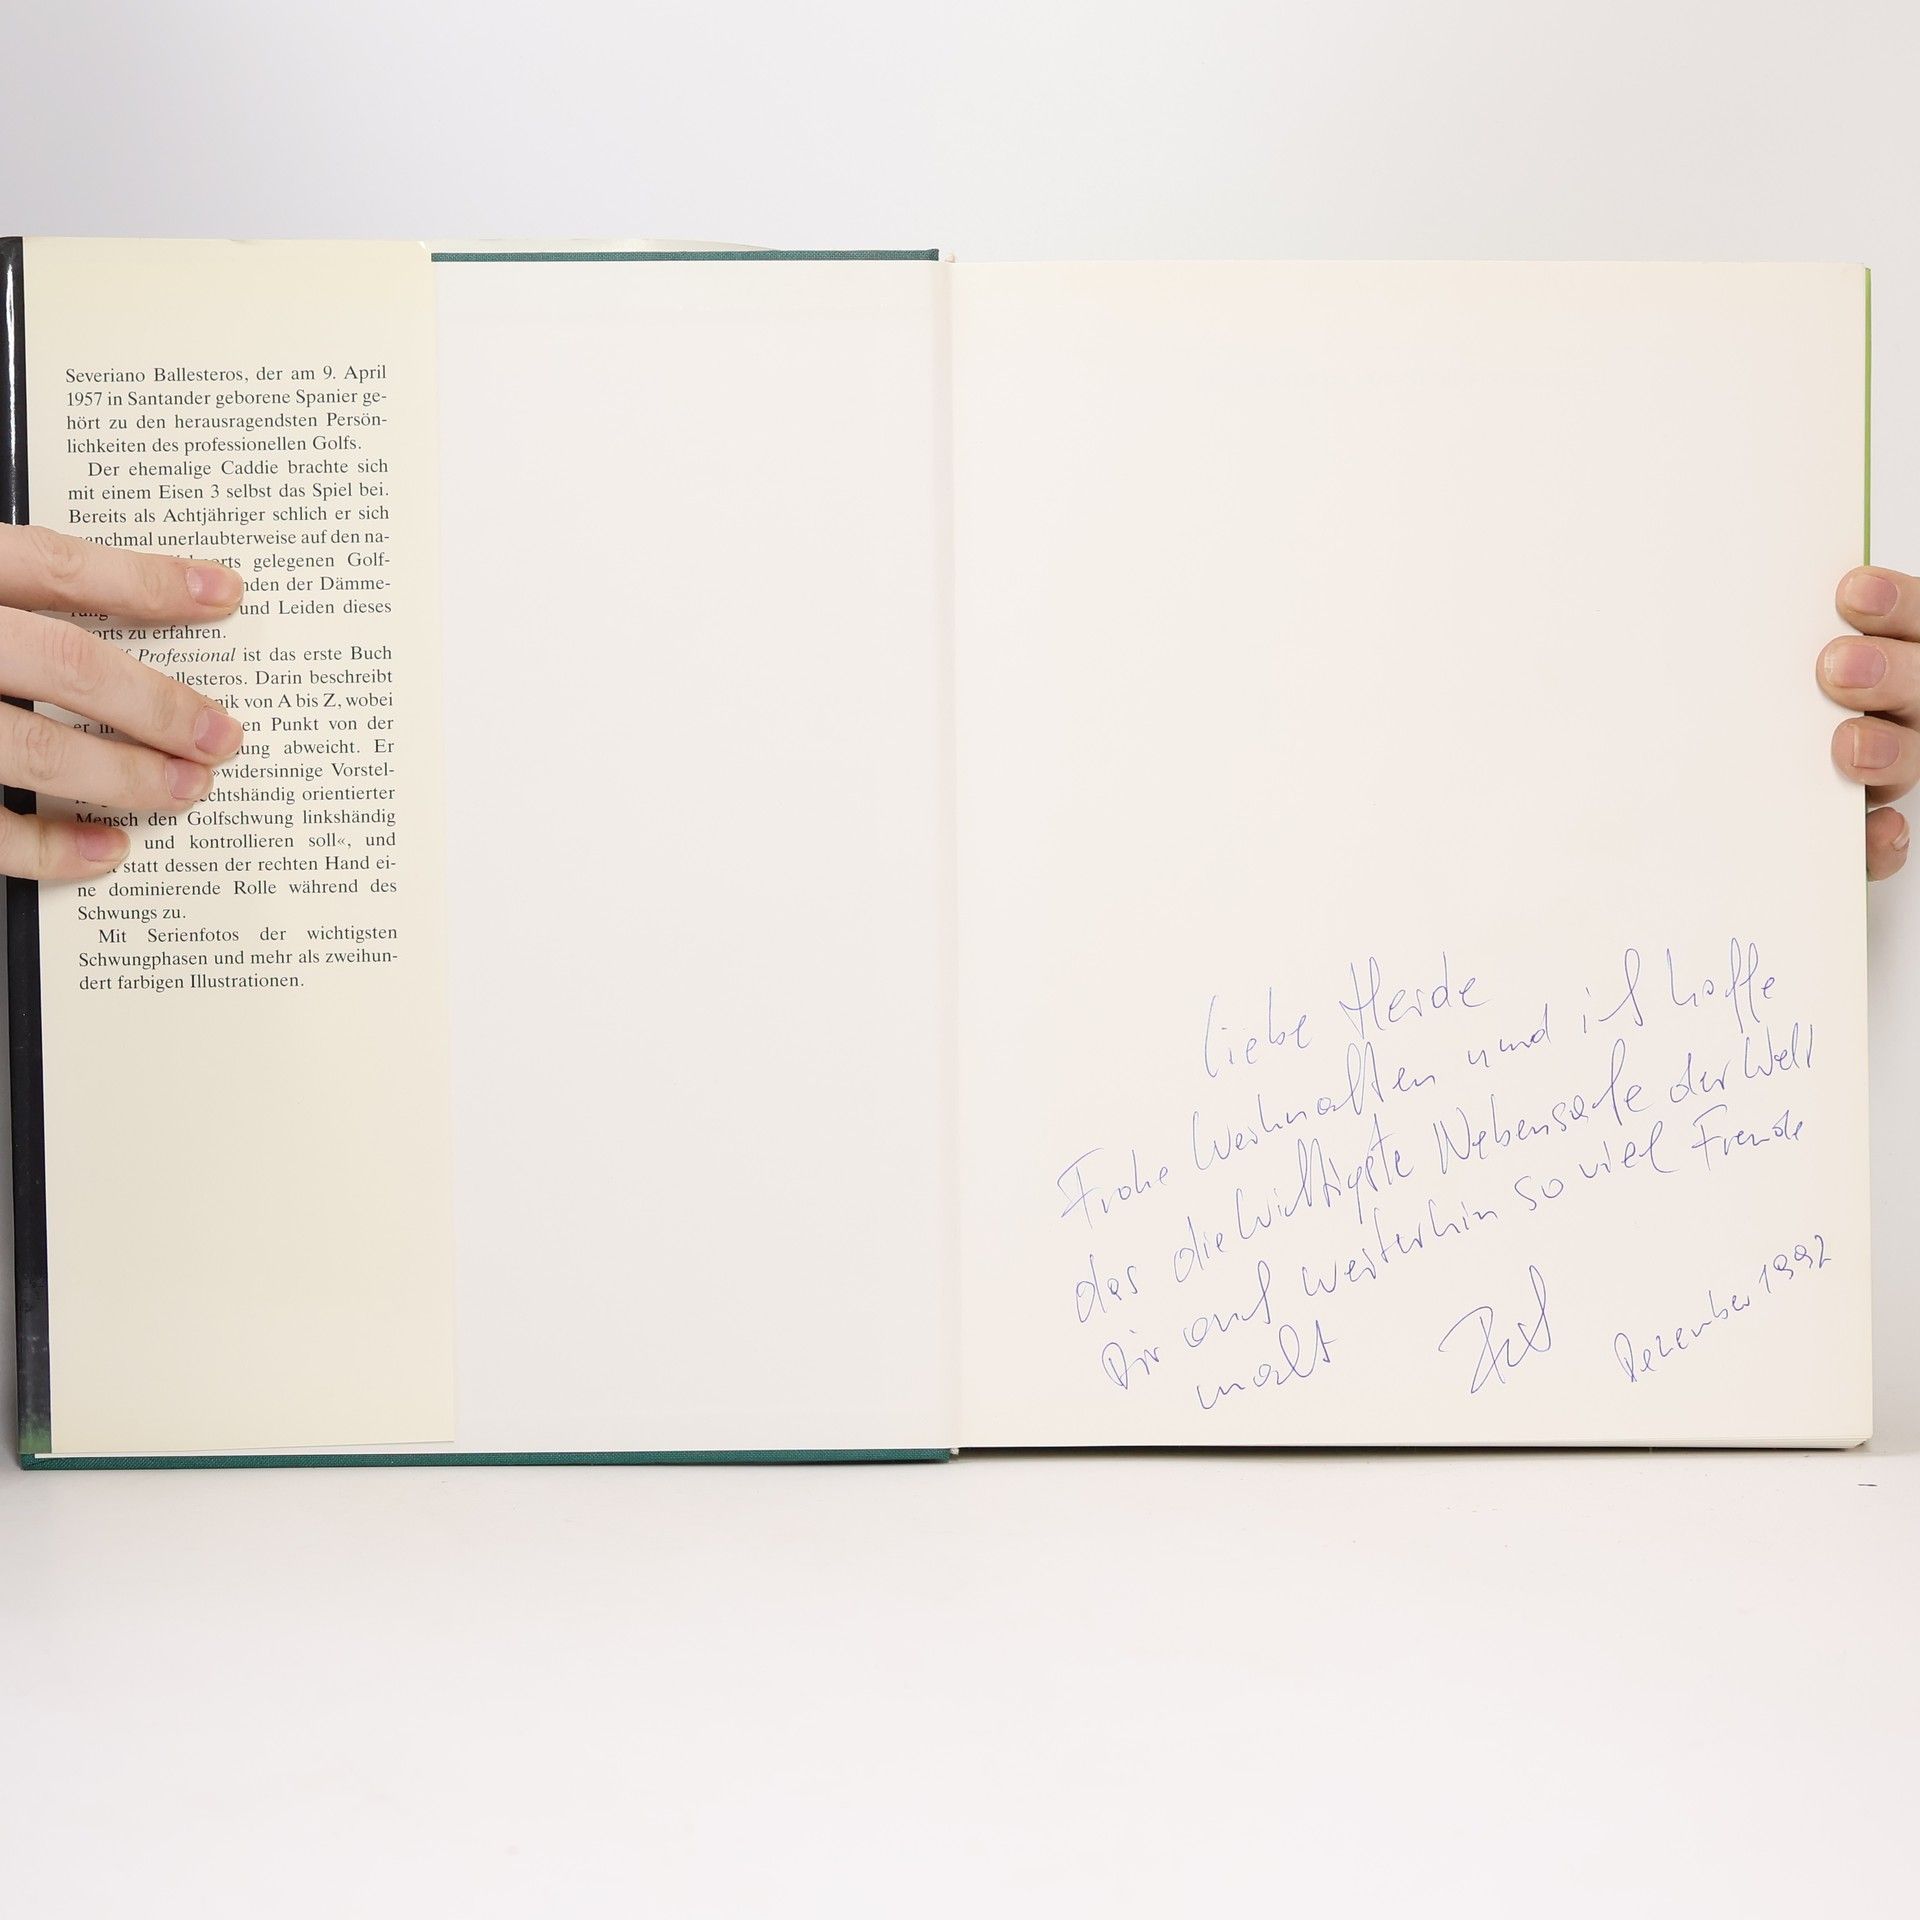 Severiano Ballesteros, der am 9. April
1957 in Santander geborene Spanier ge-
hört zu den herausragendsten Persön-
lichkeiten des professionellen Golfs.
Der ehemalige Caddie brachte sich
mit einem Eisen 3 selbst das Spiel bei.
Bereits als Achtjähriger schlich er sich
manchmal unerlaubterweise auf den na-
gelegenen Golf-
der Dämme-
und Leiden dieses
zu erfahren.
Professional ist das erste Buch
Darin beschreibt
von A bis Z, wobei
er Punkt von der
abweicht. Er
»widersinnige Vorstel-
orientierter
Mensch den Golfschwung linkshändig
und kontrollieren soll«, und
statt dessen der rechten Hand ei-
ne dominierende Rolle während des
Schwungs zu.
Mit Serienfotos der wichtigsten
Schwungphasen und mehr als zweihun-
dert farbigen Illustrationen.
Liebe Heide
Frohe Weihnachten und ich hoffe
das die Wichtigste Nebensache der Welt
Dir auch weiterhin so viel Freude
macht
Dezember 1992